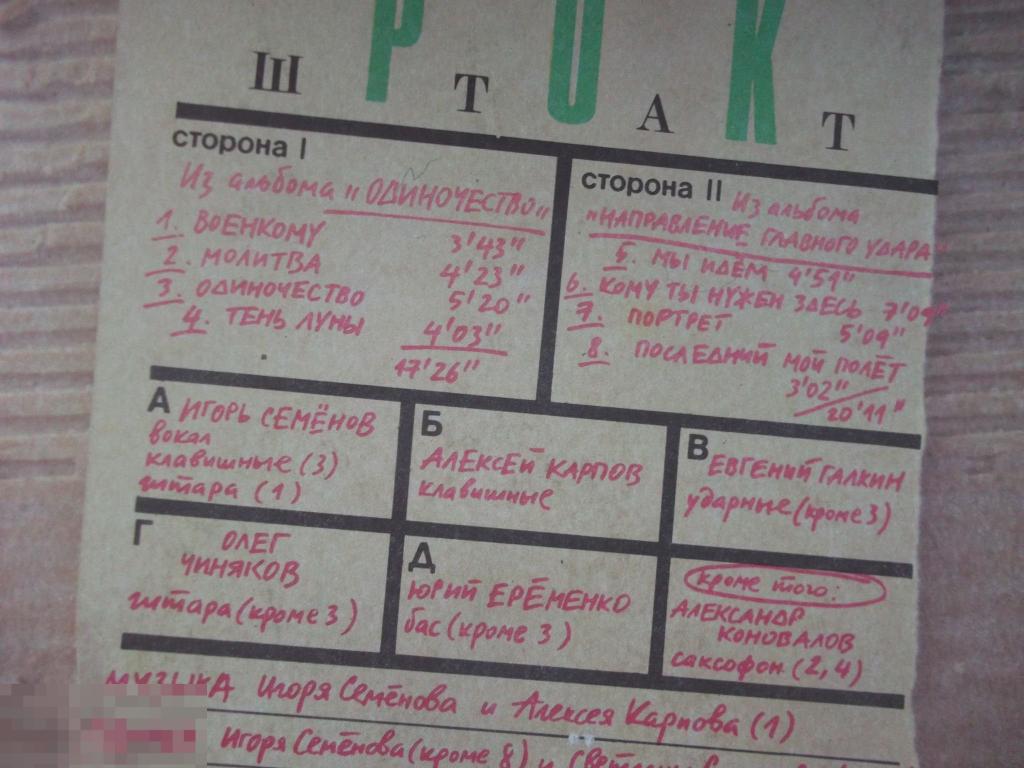 РОК
ШТАТ
сторона I
Из альбома „ОДИНОЧЕСТВО„
1. ВОЕНКОМУ 3'43"
2. МОЛИТВА 4'23"
3. ОДИНОЧЕСТВО 5'20"
4. ТЕНЬ ЛУНЫ 4'03"
17'26"
сторона II
Из альбома
„НАПРАВЛЕНИЕ ГЛАВНОГО УДАРА"
5. МЫ ИДЁМ 4'51"
6. КОМУ ТЫ НУЖЕН ЗДЕСЬ 7'09"
7. ПОРТРЕТ 5'09"
8. ПОСЛЕДНИЙ МОЙ ПОЛЁТ
3'02"
20'11"
А ИГОРЬ СЕМЁНОВ
вокал
клавишные (3)
гитара (1)
Б
АЛЕКСЕЙ КАРПОВ
клавишные
В ЕВГЕНИЙ ГАЛКИН
ударные (кроме 3)
Г ОЛЕГ
ЧИНЯКОВ
гитара (кроме 3)
Д
ЮРИЙ ЕРЁМЕНКО
бас (кроме 3)
кроме того:
АЛЕКСАНДР
КОНОВАЛОВ
саксофон (2,4)
МУЗЫКА Игоря Семёнова и Алексея Карпова (1)
Игоря Семёнова (кроме 8) и